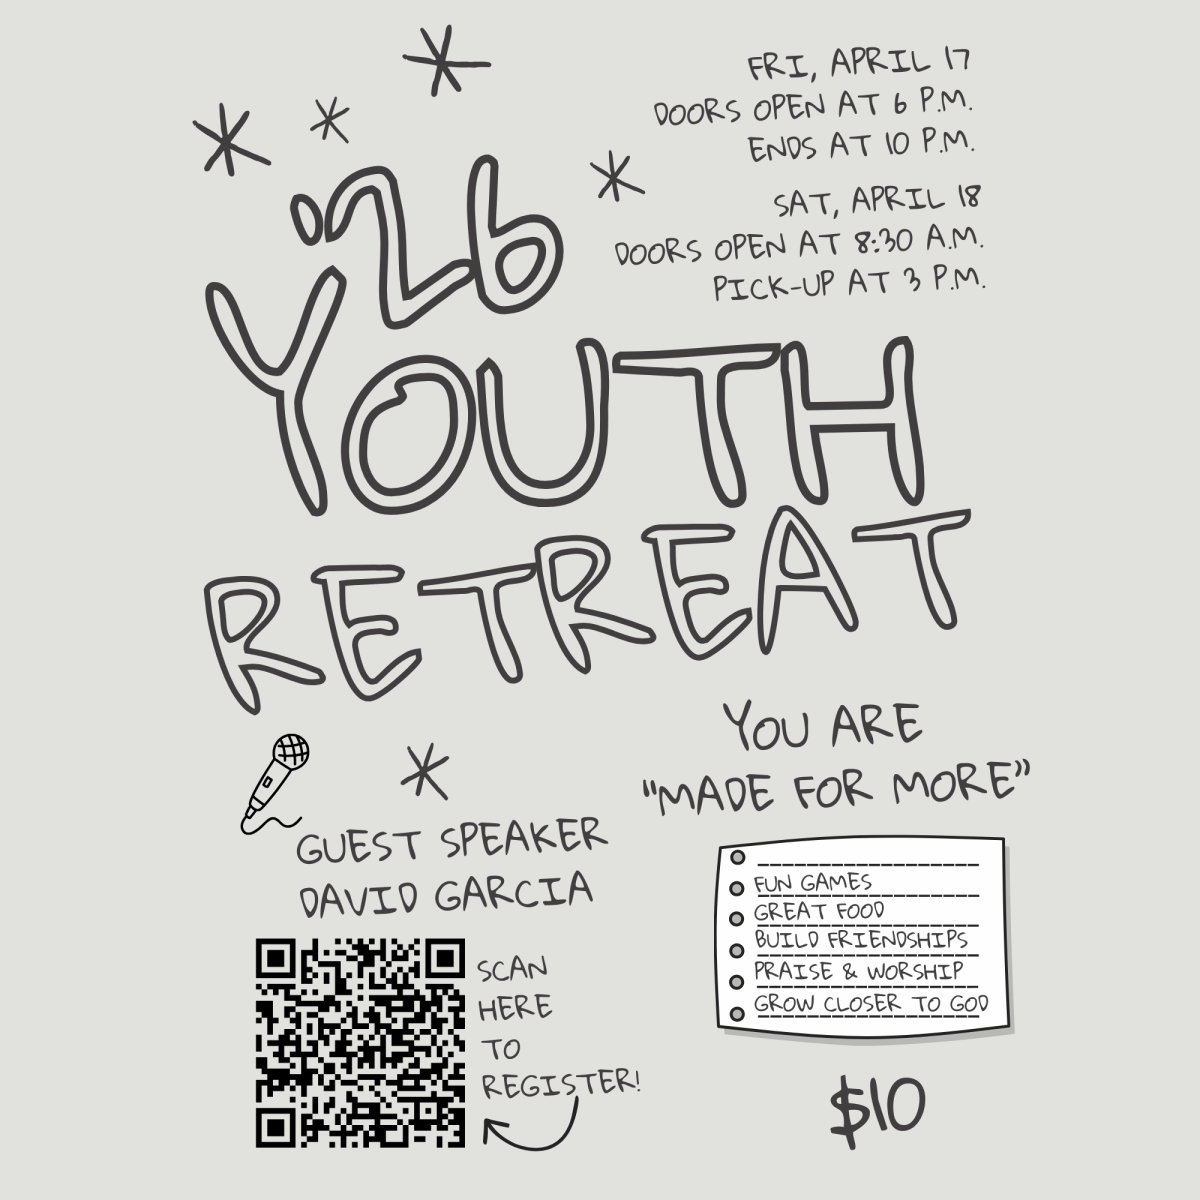 FRI, APRIL 17
DOORS OPEN AT 6 P.M.
ENDS AT 10 P.M.
SAT, APRIL 18
DOORS OPEN AT 8:30 A.M.
PICK-UP AT 3 P.M.
'26
YOUTH
RETREAT
YOU ARE
"MADE FOR MORE"
GUEST SPEAKER
DAVID GARCIA
SCAN
HERE
TO
REGISTER!
FUN GAMES
GREAT FOOD
BUILD FRIENDSHIPS
PRAISE & WORSHIP
GROW CLOSER TO GOD
$10